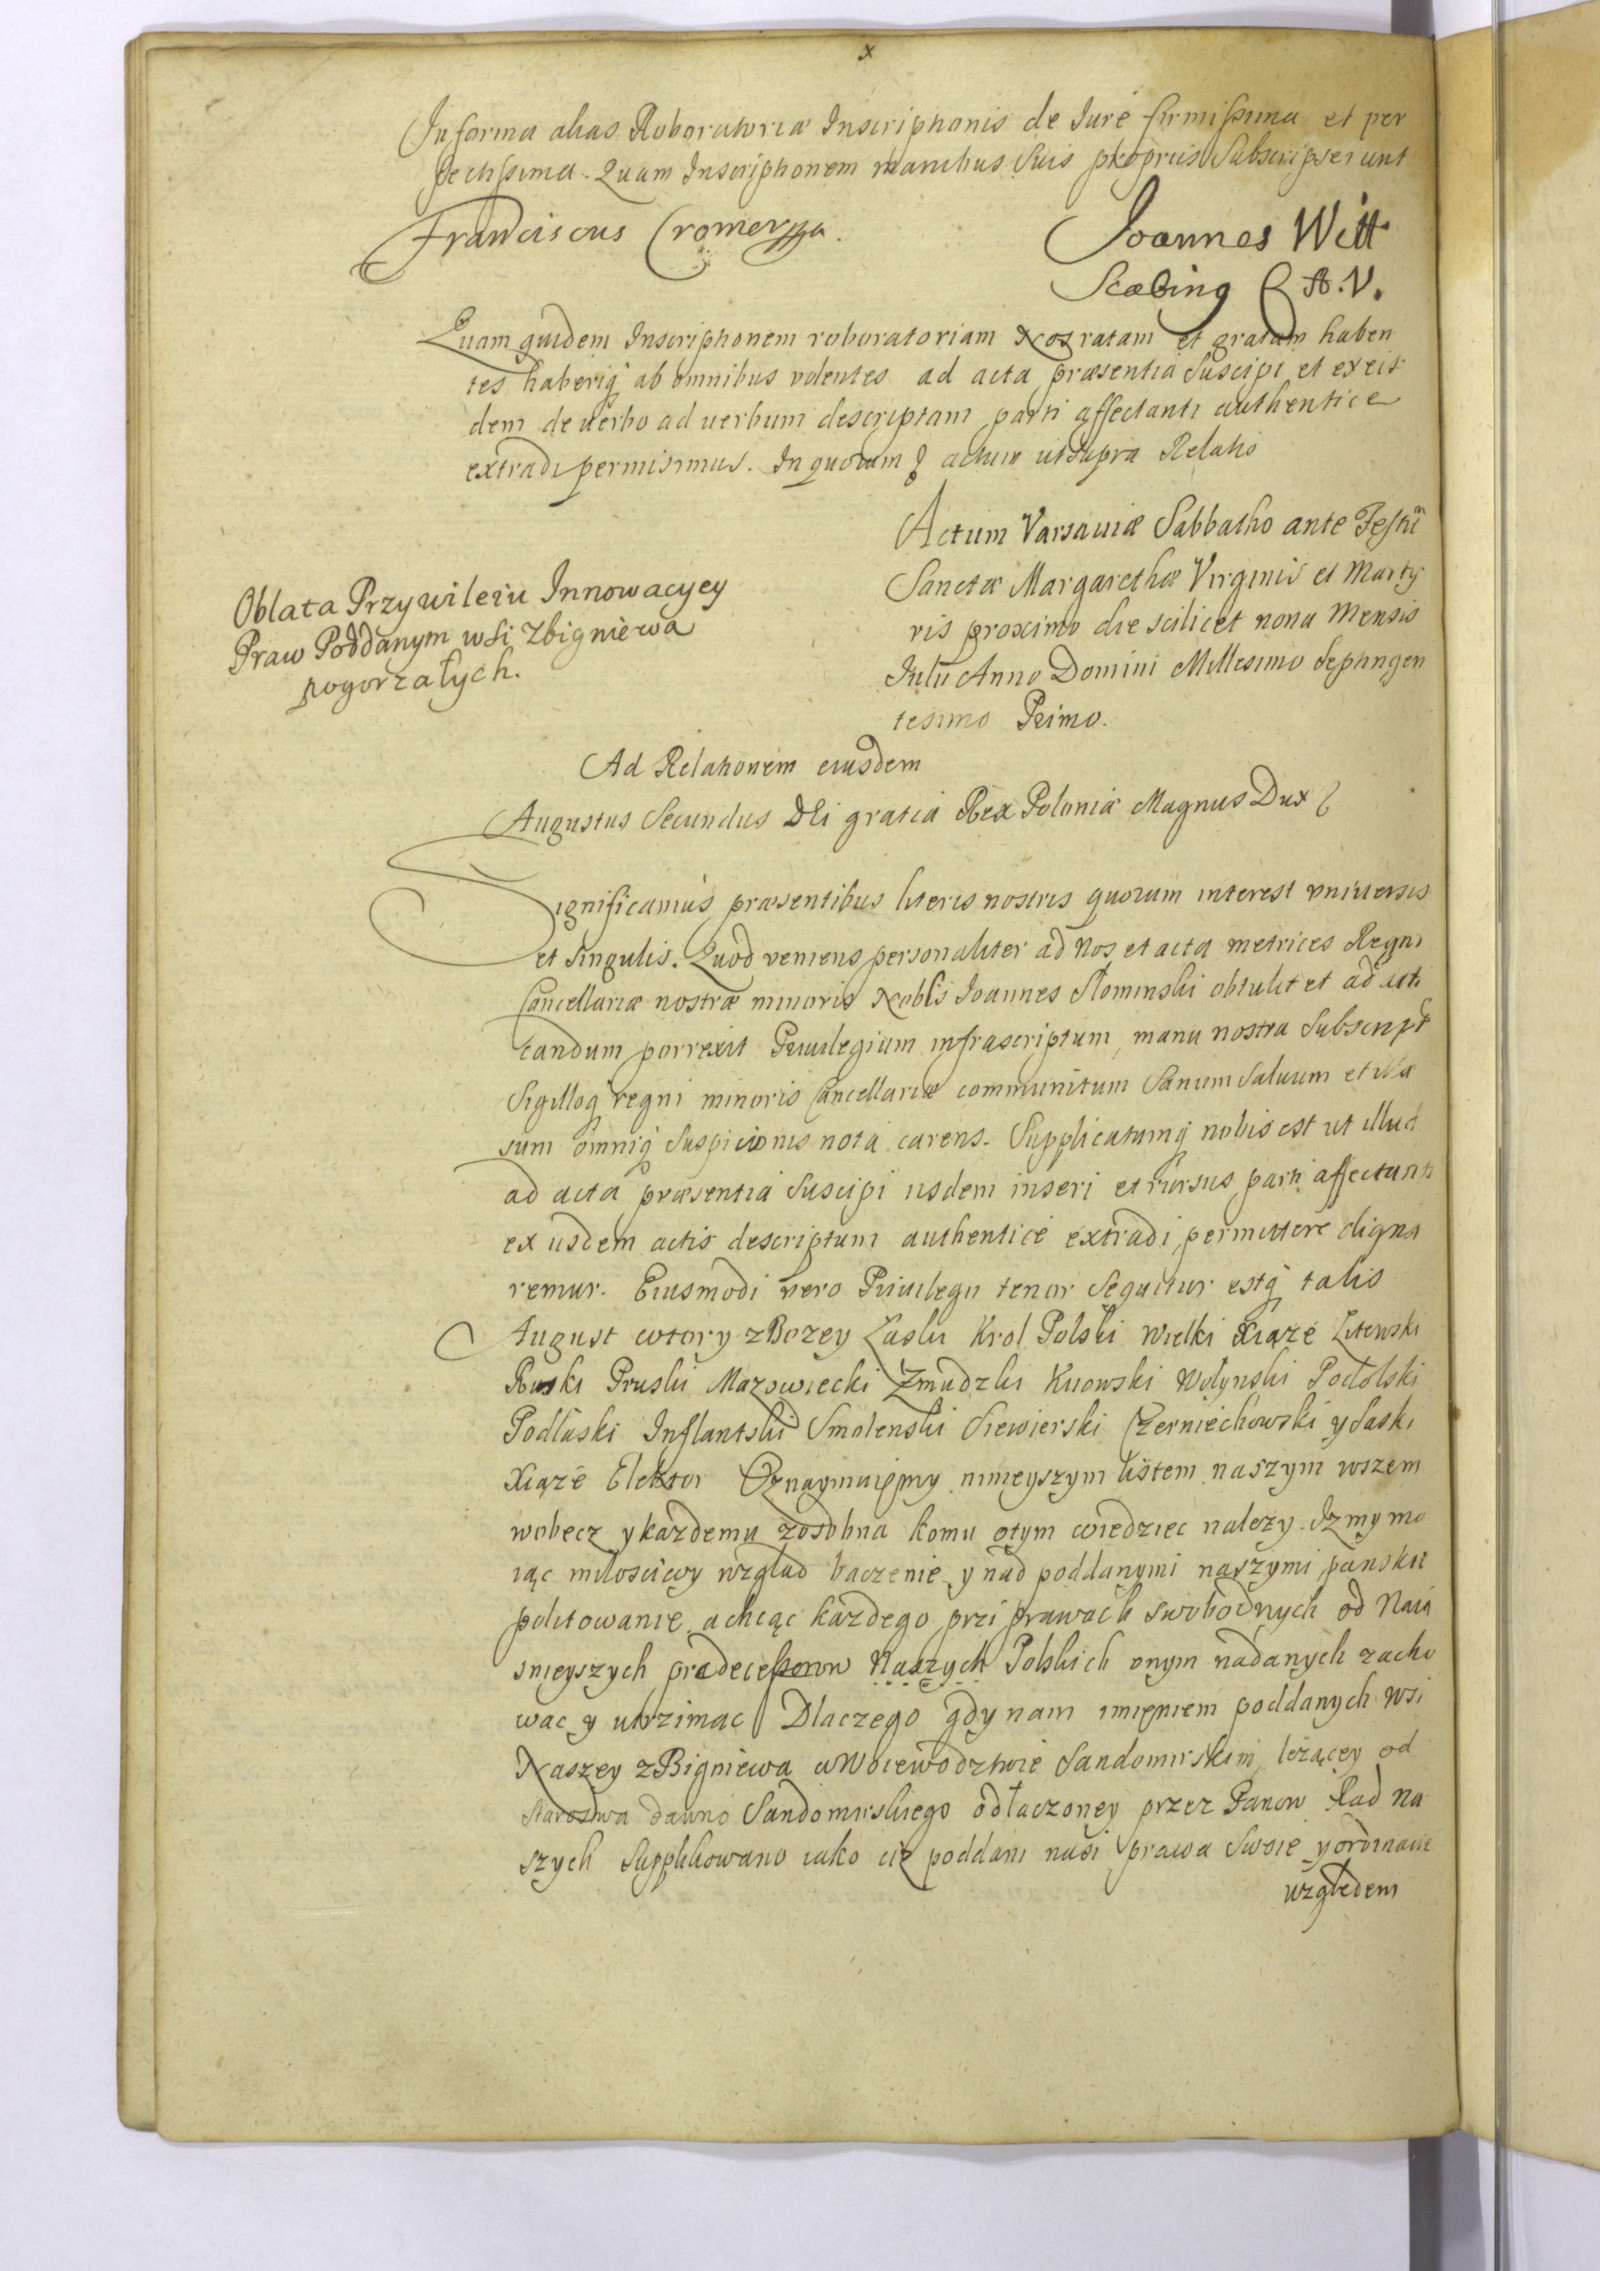 x
In forma alias Roboratoriæ Inscriptionis de Iure firmissima et per
fectissima. Quam Inscriptionem manibus suis propriis Subscripserunt
Franciscus Cromer mpa.
Joannes Witt
Scabing A. V.
Quam quidem Inscriptionem roboratoriam Nos ratam et gratam haben
tes haberiq ab omnibus volentes ad acta præsentia suscipi et ex eis
dem de verbo ad verbum descriptam parti affectanti authentice
extradi permisimus. In quorum actum ut supra Relatio
Actum Varsaviæ Sabbatho ante Festū
Sanctæ Margarethæ Virginis et Marty
ris proximo die scilicet nona Mensis
Iulii Anno Domini Millesimo Septingen
tesimo Primo.
Oblata Przywileiu Innowacyey
Praw Poddanym wsi Zbigniewa
pogorzałych.
Ad Relationem eiusdem
Augustus Secundus Dei gratia Rex Poloniæ Magnus Dux
Significamus præsentibus literis nostris quorum interest vniversis
et singulis. Quod veniens personaliter ad Nos et acta metrices Regni
Cancellariæ nostræ minoris Noblis Joannes Słominski obtulit et ad acti
candum porrexit Privilegium infrascriptum, manu nostra subscript
Sigilloq regni minoris Cancellariæ communitum Sanum salvum et illæ
sum omniq suspicionis nota carens. Supplicatumq nobis est ut illud
ad acta præsentia suscipi iisdem inseri et rursus parti affectanti
ex iisdem actis descriptum authentice extradi permittere digna
remur. Eiusmodi vero Privilegii tenor sequitur estq talis
August wtory z Bozey Łaski Krol Polski Wielki Xiąze Litewski
Ruski Pruski Mazowiecki Zmudzki Kiiowski Wołynski Podolski
Podlaski Inflantski Smolenski Siewierski Czerniechowski y Saski
Xiąze Elektor Oznaymuiemy ninieyszym listem naszym wszem
wobecz y kazdemu zosobna komu otym wiedziec nalezy. Iz my ma
iąc miłosciwy wzgląd baczenie y nad poddanymi naszymi panskie
politowanie, a chcąc kazdego przi prawach swobodnych od Naia
snieyszych predecessorow Naszych Polskich onym nadanych zacho
wac y utrzimac Dlaczego gdy nam imieniem poddanych wsi
Naszey zBigniewa w Woiewodztwie Sandomirskim lezącey od
Starostwa dawno Sandomirskiego odłaczoney przez Panow Rad Na
szych supplikowano iako ciz poddani nasi prawa swoie y ordinacie
względem